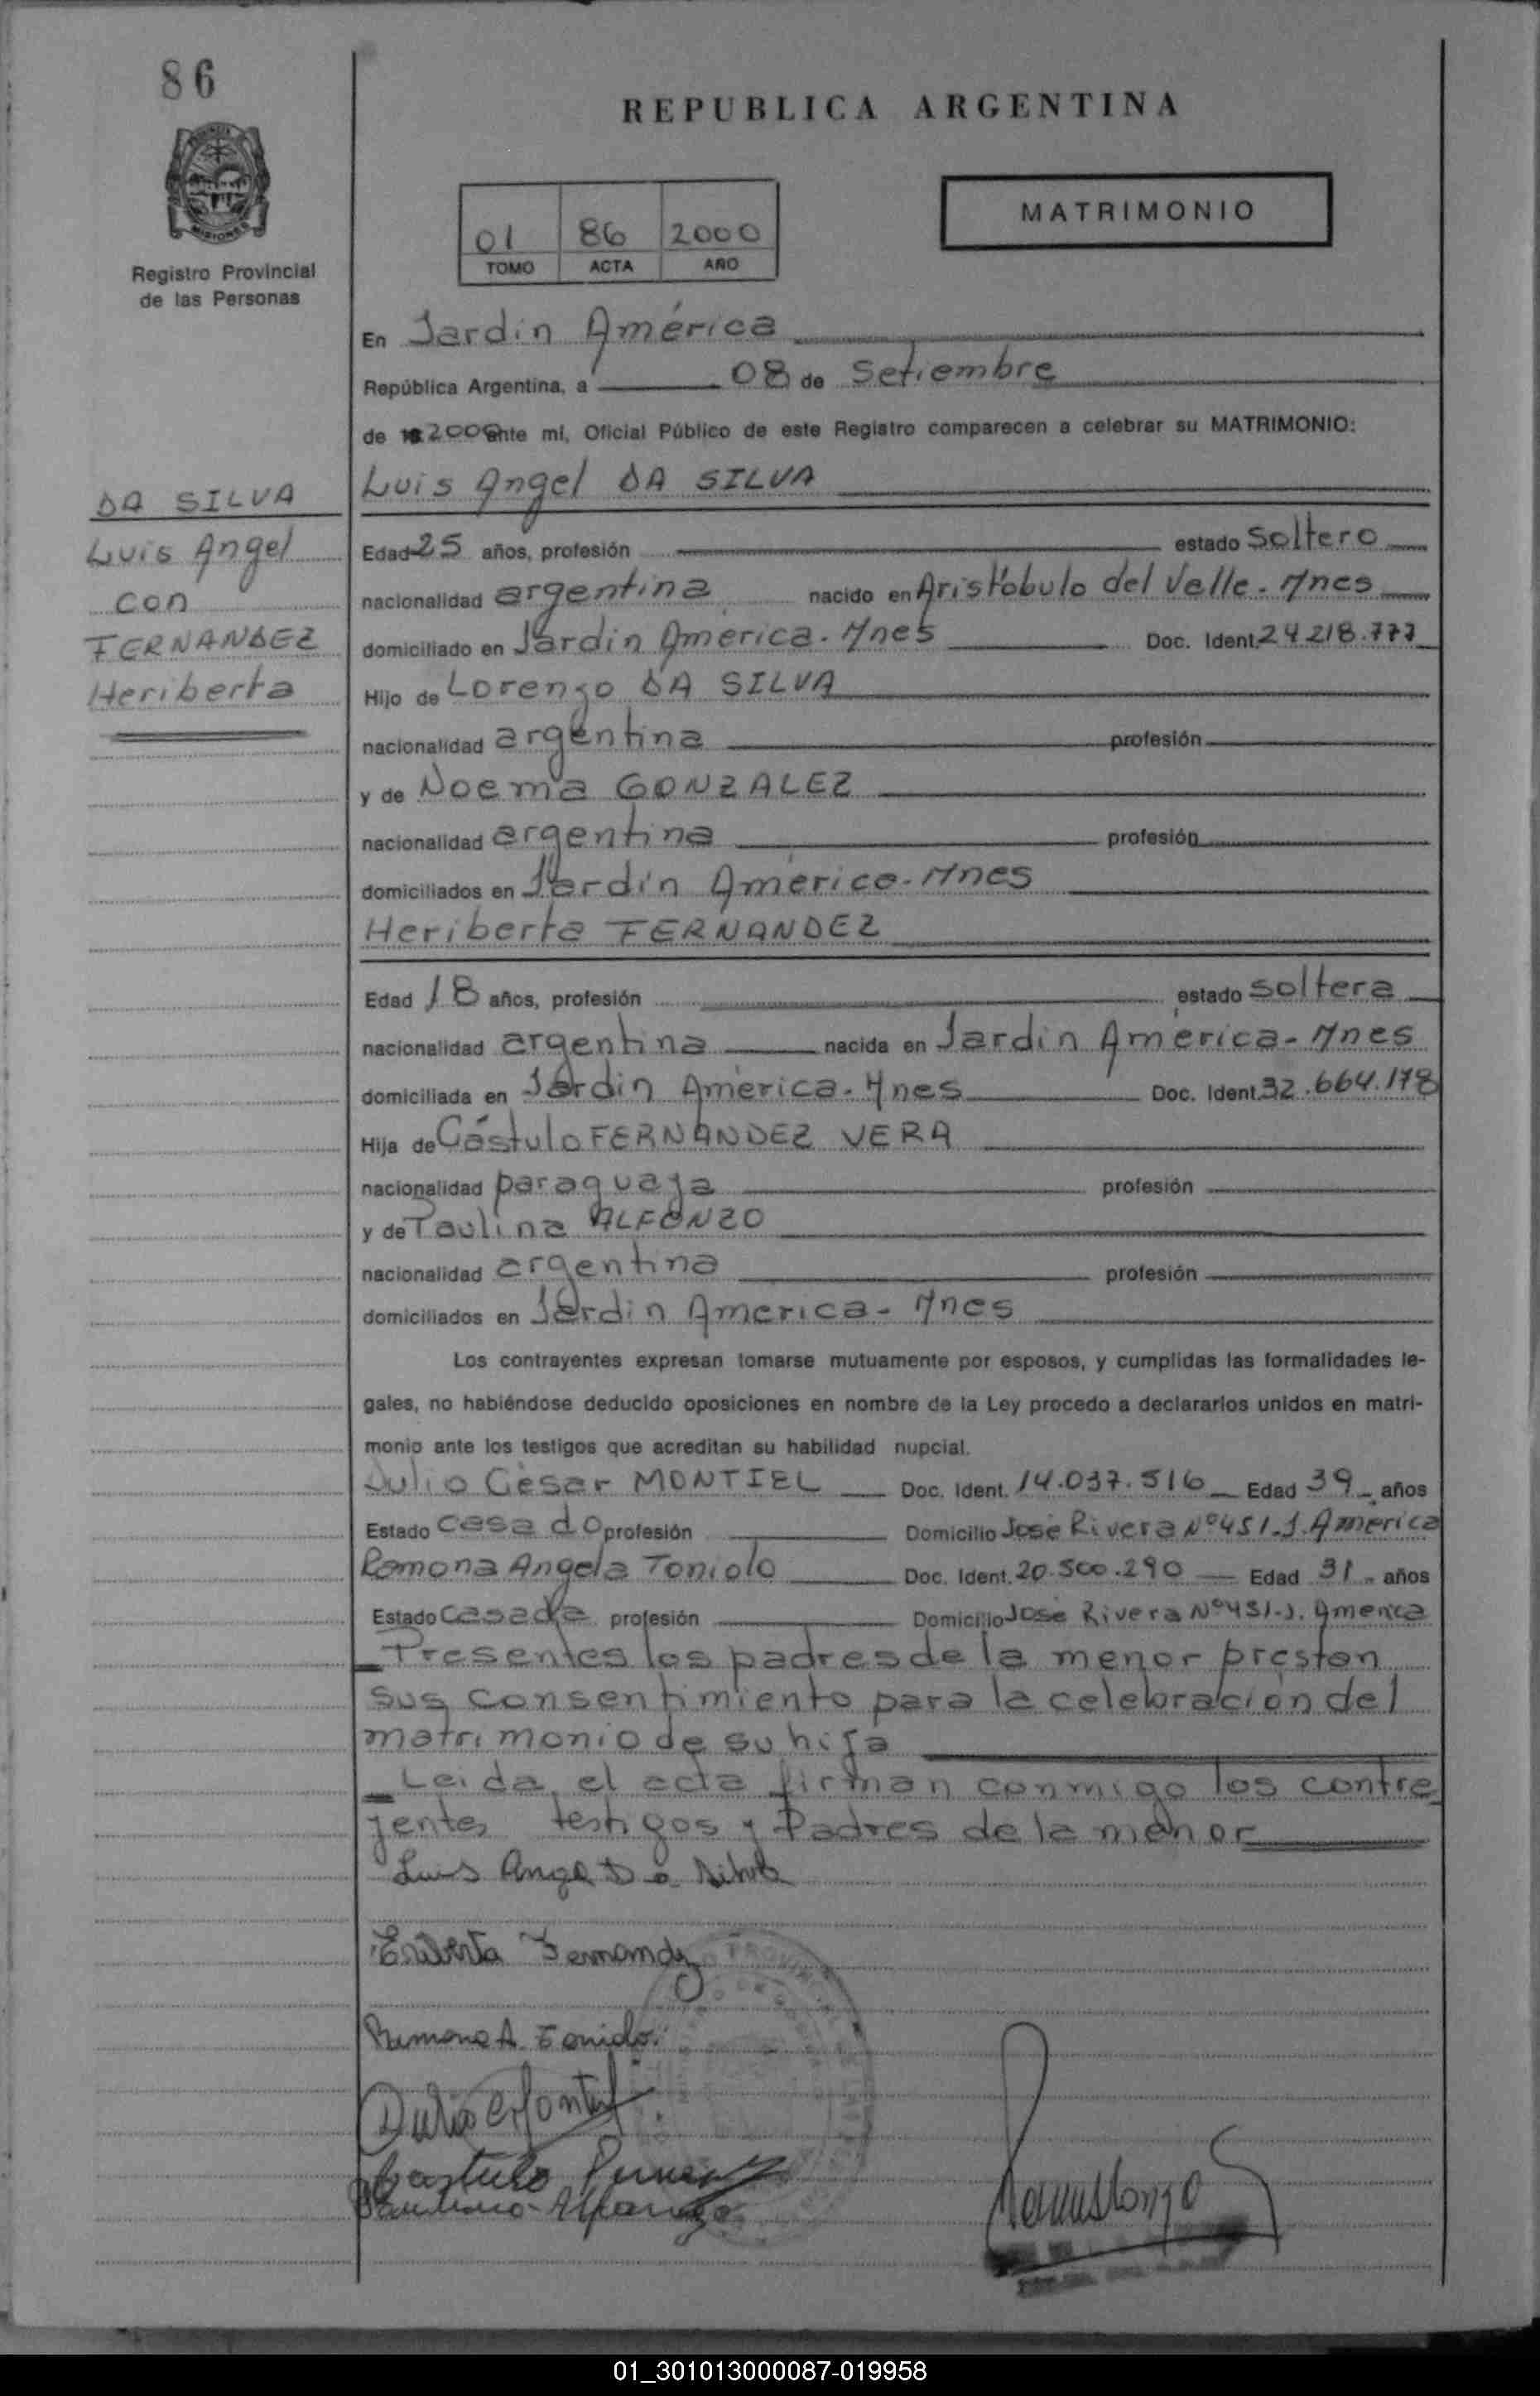 86
REPUBLICA ARGENTINA
MISIONES
Registro Provincial
de las Personas
01 86 2000
TOMO ACTA AÑO
MATRIMONIO
En Jardin América
República Argentina, a 08 de Setiembre
de 2000 ante mí, Oficial Público de este Registro comparecen a celebrar su MATRIMONIO:
Luis Angel DA SILVA
DA SILVA
Luis Angel
con
FERNANDEZ
Heriberta
Edad 25 años, profesión estado soltero
nacionalidad argentina nacido en Aristóbulo del Valle. Mnes
domiciliado en Jardin América. Mnes Doc. Ident. 24.218.777
Hijo de Lorenzo DA SILVA
nacionalidad argentina profesión
y de Noema GONZALEZ
nacionalidad argentina profesión
domiciliados en Jardín América-Mnes
Heriberta FERNANDEZ
Edad 18 años, profesión estado soltera
nacionalidad argentina nacida en Jardin América- Mnes
domiciliada en Jardin América. Mnes Doc. Ident. 32.664.178
Hija de Cástulo FERNANDEZ VERA
nacionalidad paraguaya profesión
y de Paulina ALFONZO
nacionalidad argentina profesión
domiciliados en Jardin America- Mnes
Los contrayentes expresan tomarse mutuamente por esposos, y cumplidas las formalidades le-
gales, no habiéndose deducido oposiciones en nombre de la Ley procedo a declararlos unidos en matri-
monio ante los testigos que acreditan su habilidad nupcial.
Julio César MONTIEL Doc. Ident. 14.037.516 Edad 39 años
Estado casado profesión Domicilio José Rivera Nº451-J. América
Ramona Angela Toniolo Doc. Ident. 20.500.290 Edad 31 años
Estado casada profesión Domicilio José Rivera Nº451-J. America
Presentes los padres de la menor prestan
sus consentimiento para la celebración del
matrimonio de su hija
Leida el acta firman conmigo los contra
yentes testigos y Padres de la menor
Luis Angel Da Silva
Eriberta Fernandez
Ramona A Toniolo
Castulo Fernandez
Paulina Alfonzo
01_301013000087-019958